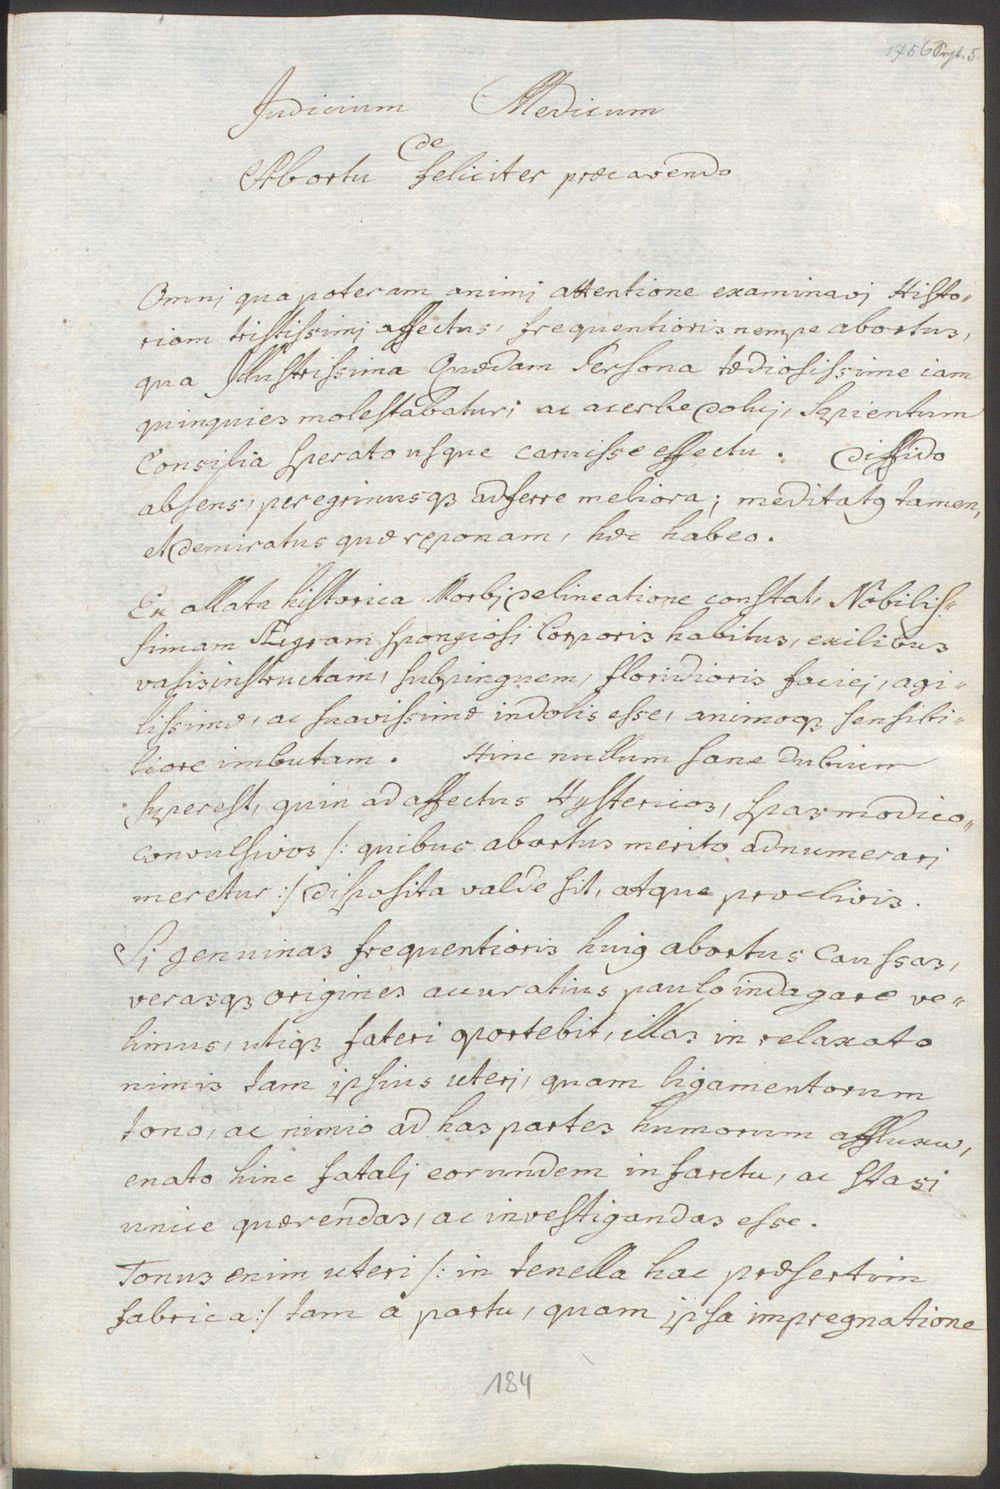 1756 Sept. 5.
Judicium Medicum
de
Abortu feliciter præcavendo
Omni qua poteram animi attentione examinavi Histo„
riam tristissimi affectus, frequentioris nempe abortus,
qua Illustrissima Quædam Persona tædiosissime iam
quinquies molestabatur; ac acerbe dolui, Sapientum
Consilia sperato usque caruisse effectu. Diffido
absens, peregrinusq₃ adferre meliora; meditatꝯ tamen,
et demiratus quæ reponam, hæc habeo.
Ex allata historica Morbi delineatione constat, Nobilis„
simam Ægram spongiosi Corporis habitus, exilibus
vasis instructam, subpinguem, floridioris faciei, agi„
lissimæ, ac suavissimæ indolis esse, animoq₃ sensibi„
liore imbutam. Hinc nullum sane dubium
superest, quin ad affectus Hystericos, spasmodico„
convulsivos /: quibus abortus merito adnumerari
meretur :/ disposita valde sit, atque proclivis.
Si genuinas frequentioris huiꝯ abortus Caussas,
verasq₃ origines accuratius paulo indagare ve„
limus, utiq₃ fateri oportebit, illas in relaxato
nimis tam ipsius uteri, quam ligamentorum
tono, ac nimio ad has partes humorum affluxu,
enato hinc fatali eorundem infarctu, ac stasi
unice quærendas, ac investigandas esse.
Tonus enim uteri /: in tenella hac præsertim
fabrica :/ tam a partu, quam ipsa impregnatione
184